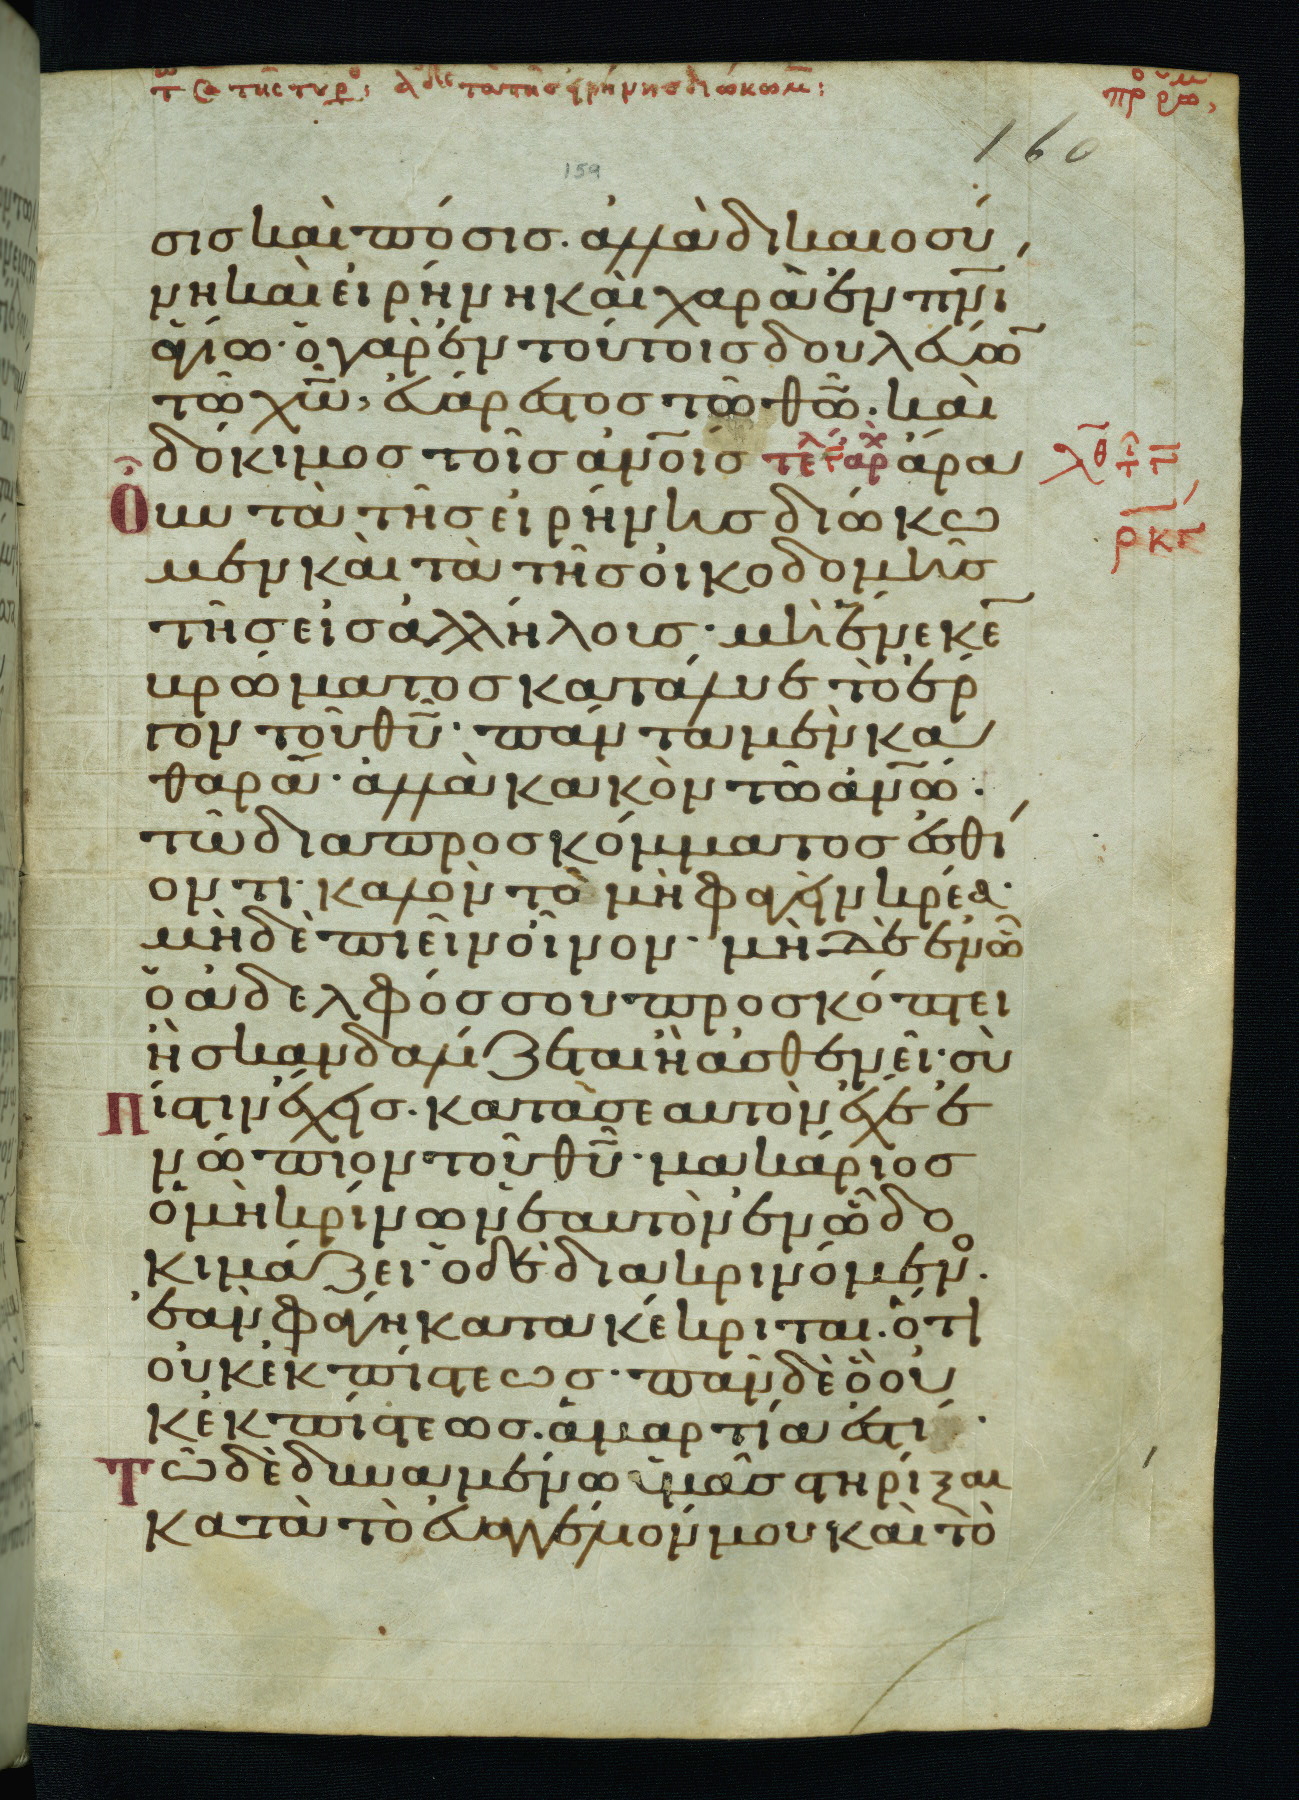 160
159
σισ καὶ πόσισ. ἀλλὰ δικαιοσύ
νη καὶ εἰρήνη καὶ χαρὰ ἐν πν̅ι
ἁγίω· ὁ γὰρ ἐν τούτοισ δουλεύω̅
τῶ χω̅, εὐάρεστοσ τῶ θω̅. καὶ
δόκιμοσ τοῖσ ἀνο̅ισ ἄρα
Οὖν τὰ τῆσ εἰρήνησ διώκω
μεν καὶ τὰ τῆσ οἰκοδομῆσ
τῆσ εἰσ ἀλλήλουσ· μὴ ἕνεκε̅
βρώματοσ κατάλυε τὸ ἔρ
γον τοῦ θυ̅· πάντα μὲν κα
θαρὰ· ἀλλὰ κακὸν τῶ ἀνω̅.
τῶ διὰ προσκόμματοσ ἐσθί
οντι· καλὸν τὸ μὴ φαγεῖν κρέα·
μηδὲ πιεῖν οἶνον· μὴ δὲ ἐν ὧ
ὁ ἀδελφόσ σου προσκόπτει
ἢ σκανδαλίζεται ἢ ἀσθενεῖ· σὺ
Πίστιν ἔχεισ. κατὰ σεαυτὸν ἔχε ἐ
νώπιον τοῦ θυ̅· μακάριοσ
ὁ μὴ κρίνων ἑαυτὸν ἐν ὧ δο
κιμάζει· ὁ δὲ διακρινόμενο.
ἐὰν φάγη κατακέκριται. ὅτι
οὐκ ἐκ πίστεωσ· πᾶν δὲ ὃ οὐ
κ ἐκ πίστεωσ. ἁμαρτία ἐστί·
Τῶ δὲ δυναμένω ὑμᾶσ στηρίξαι
κατὰ τὸ εὐαγγέλιόν μου καὶ τὸ